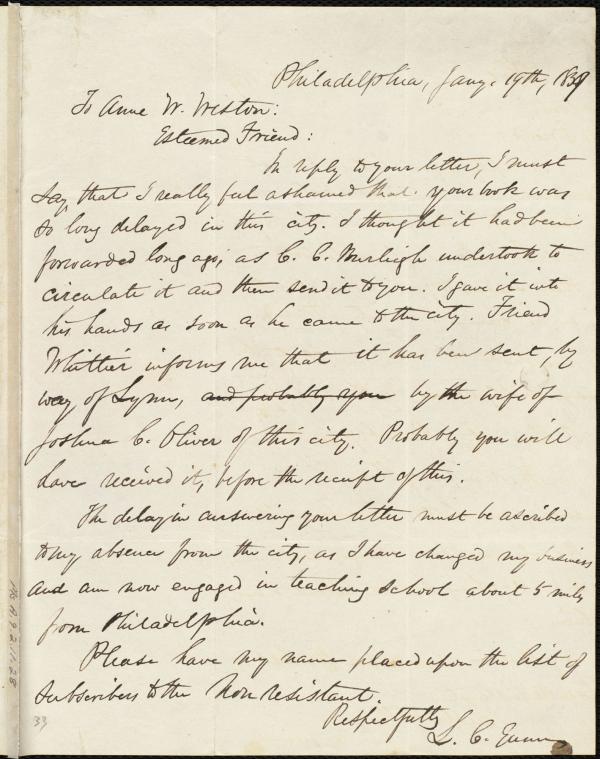 Philadelphia, Jany. 19th, 1839
To Anne W. Weston:
Esteemed Friend:
In reply to your letter, I must
say, that I really feel ashamed that your book was
so long delayed in this city. I thought it had been
forwarded long ago; as C. C. Burleigh undertook to
circulate it and then send it to you. I gave it into
his hands as soon as he came to the city. Friend
Whittier informs me that it has been sent, by
way of Lynn, and probably you by the wife of
Joshua C. Oliver of this city. Probably you will
have received it, before the receipt of this.
The delay in answering your letter must be ascribed
to my absence from the city, as I have changed my business
and am now engaged in teaching school about 5 miles
from Philadelphia.
Please have my name placed upon the list of
subscribers to the Non resistant.
Respectfully
L. C. Gunn
33